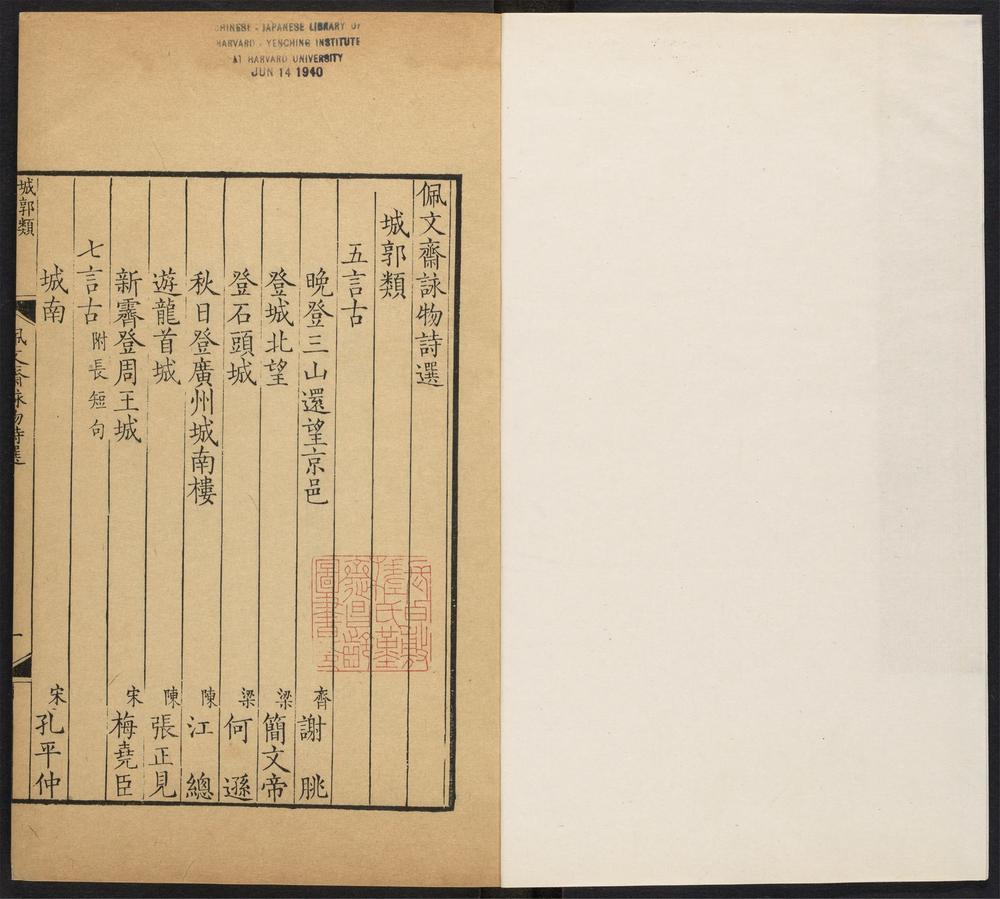 CHINESE - JAPANESE LIBRARY OF
HARVARD - YENCHING INSTITUTE
AT HARVARD UNIVERSITY
JUN 14 1940
佩文齋詠物詩選
城郭類
五言古
晚登三山還望京邑 齊 謝朓
登城北望 梁 簡文帝
登石頭城 梁 何遜
秋日登廣州城南樓 陳 江總
遊龍首城 陳 張正見
新霽登周王城 宋 梅堯臣
七言古 附長短句
城南 宋 孔平仲
城郭類
佩文齋詠物詩選
一